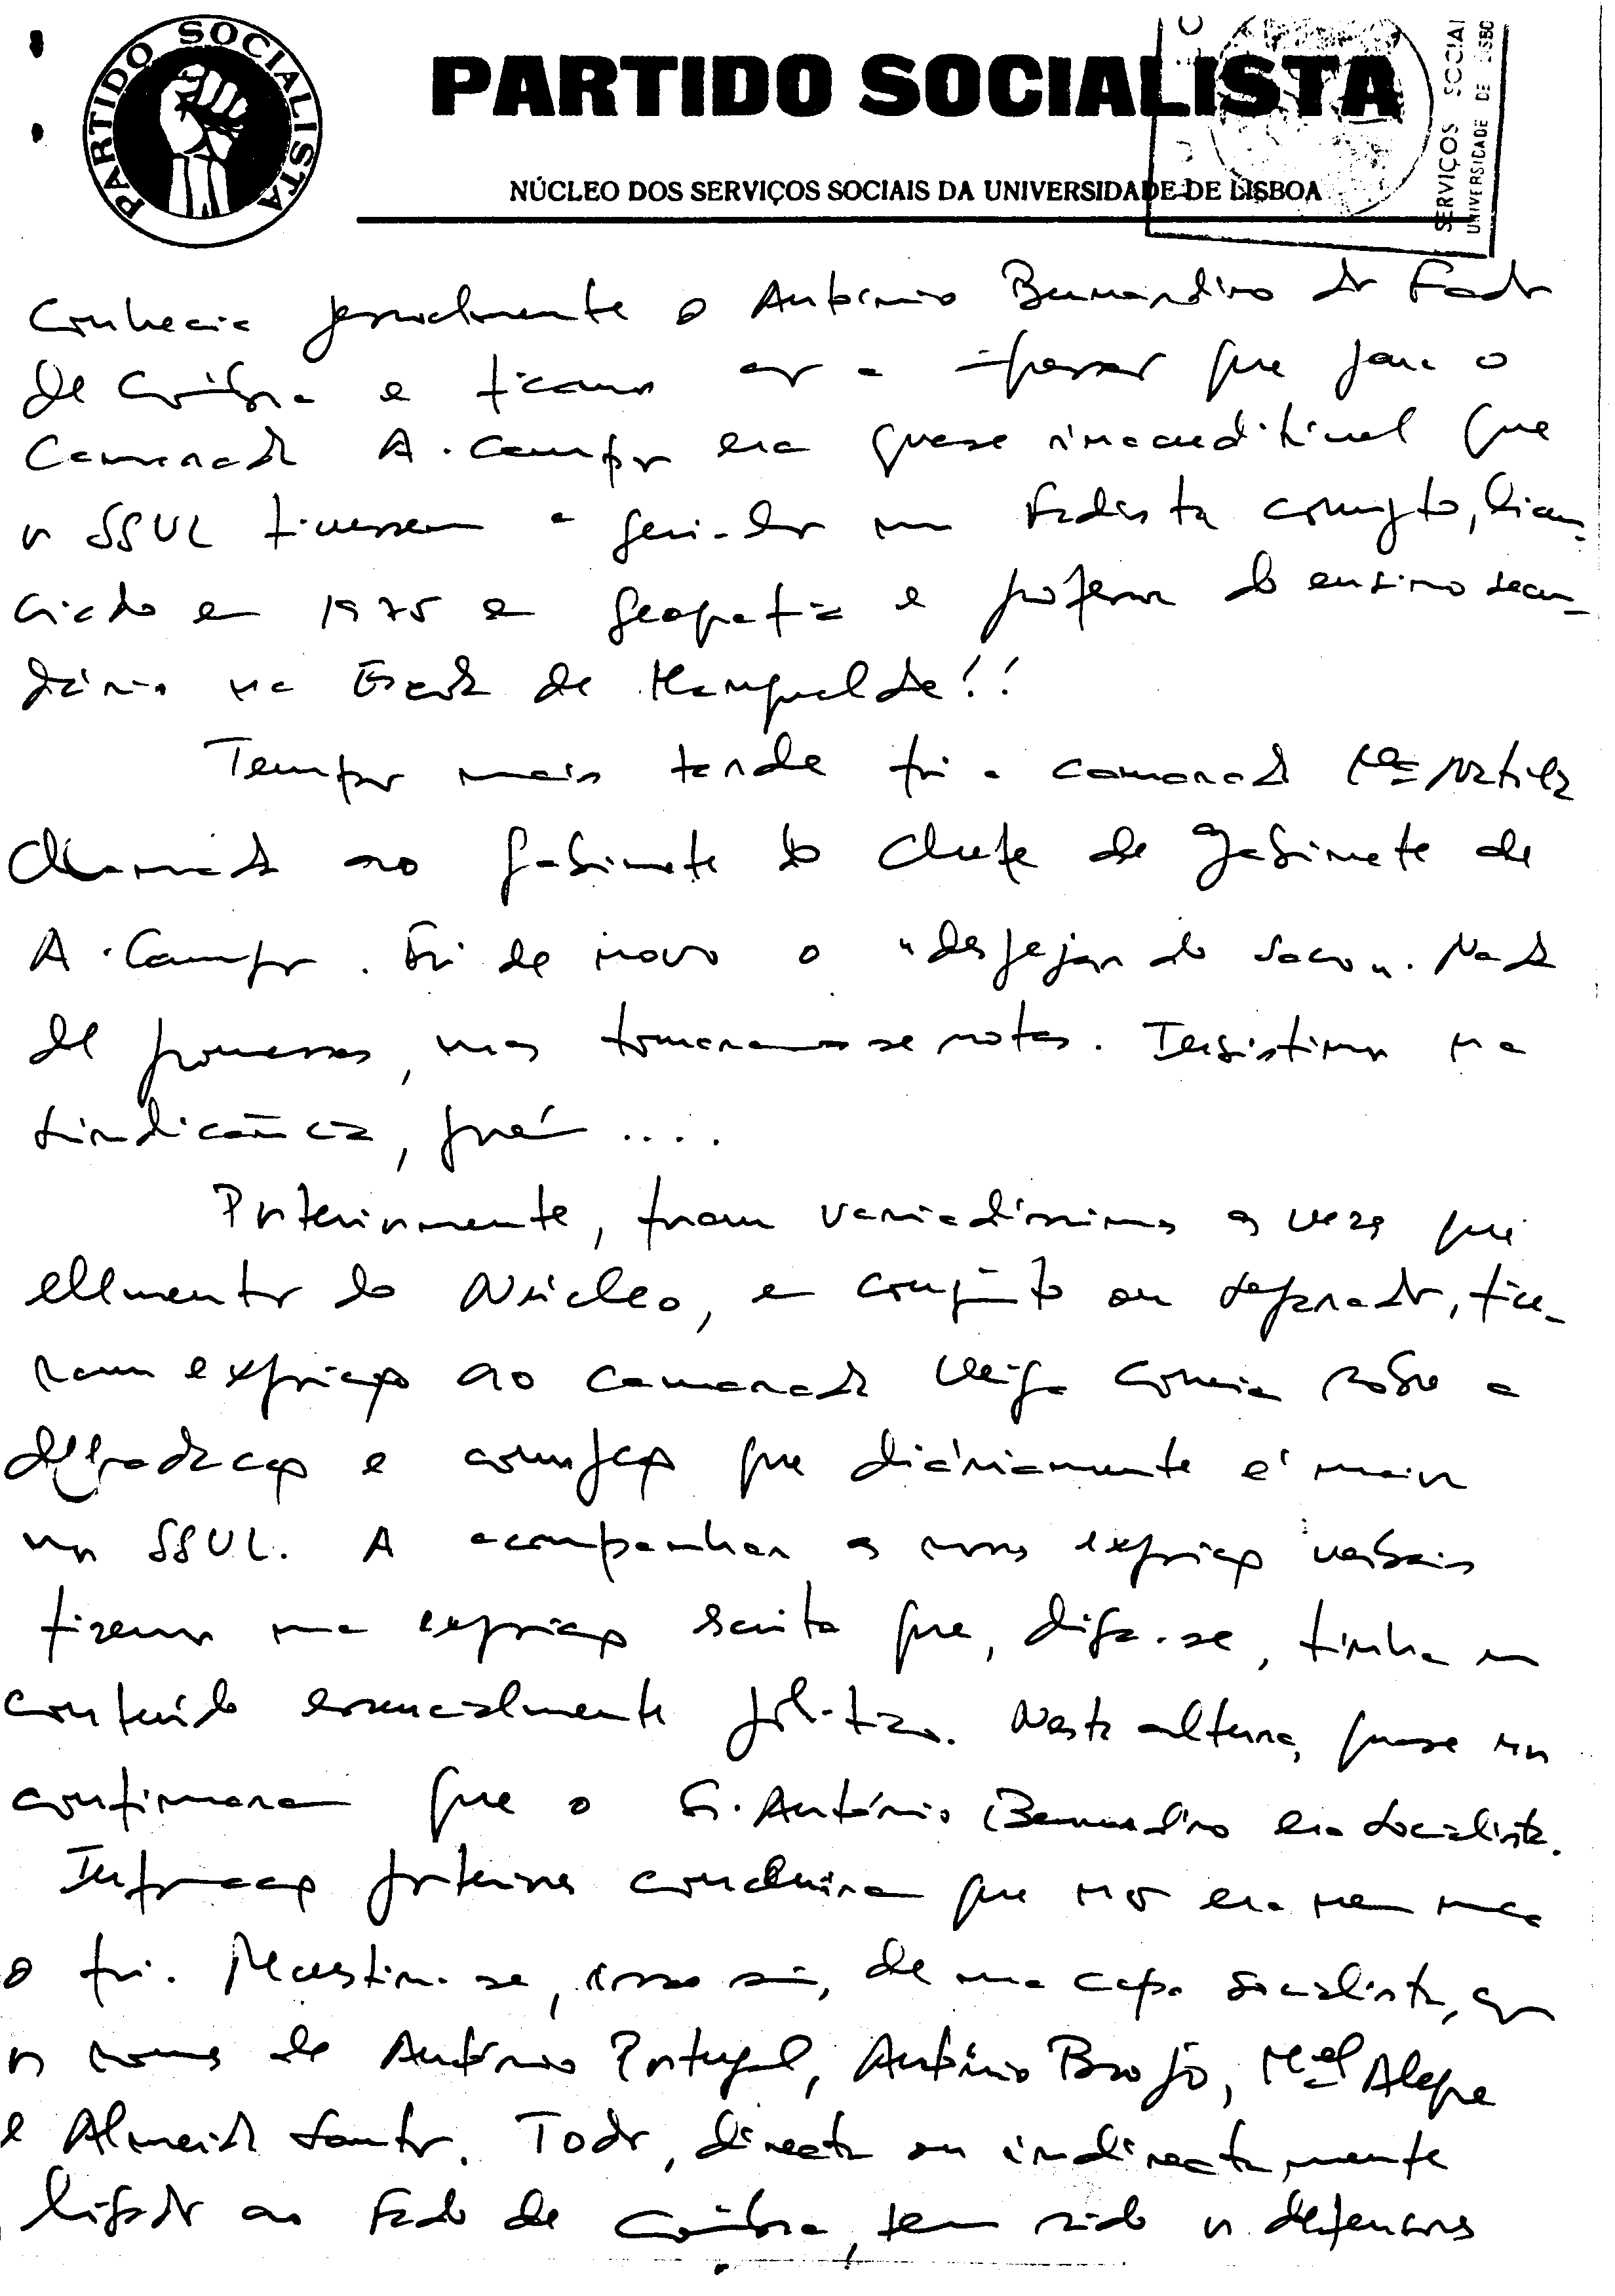 PARTIDO SOCIALISTA
PARTIDO SOCIALISTA
NÚCLEO DOS SERVIÇOS SOCIAIS DA UNIVERSIDADE DE LISBOA
SERVIÇOS SOCIAI
UNIVERSIDADE DE LISBO
Conhecia pessoalmente o António Bernardino do Fado
de Coimbra e ficamos com a impressão que para o
Camarada A. Campos era quase inacreditável que
os SSUL tivessem a geri-los um fadista corrupto, licen-
ciado em 1975 em geografia e professor do ensino secun-
dário na Escola de Mangualde!!
Tempos mais tarde foi a camarada Mª Natália
chamada ao gabinete do Chefe de Gabinete de
A. Campos. Foi de novo o "despejar do saco". Nada
de promessas, mas tomaram-se notas. Insistimos na
sindicância, porém ....
Posteriormente, foram variadíssimas as vezes que
elementos do Núcleo, em conjunto ou separado, fize-
ram exposição ao camarada Veiga Correia sobre a
degradação e corrupção que diáriamente é maior
nos SSUL. A acompanhar as novas exposições verbais
fizemos uma exposição escrita que, diga-se, tinha um
conteúdo essencialmente político. Nesta altura, quase nos
confirmaram que o Sr. António Bernardino era socialista.
Informações posteriores concluiram que não era nem nunca
o foi. Mascarou-se, isso sim, de uma capa socialista, com
os nomes de António Portugal, António Brojo, Mel Alegre
e Almeida Santos. Todos, directa ou indirectamente
ligados ao Fado de Coimbra, tem sido os defensores